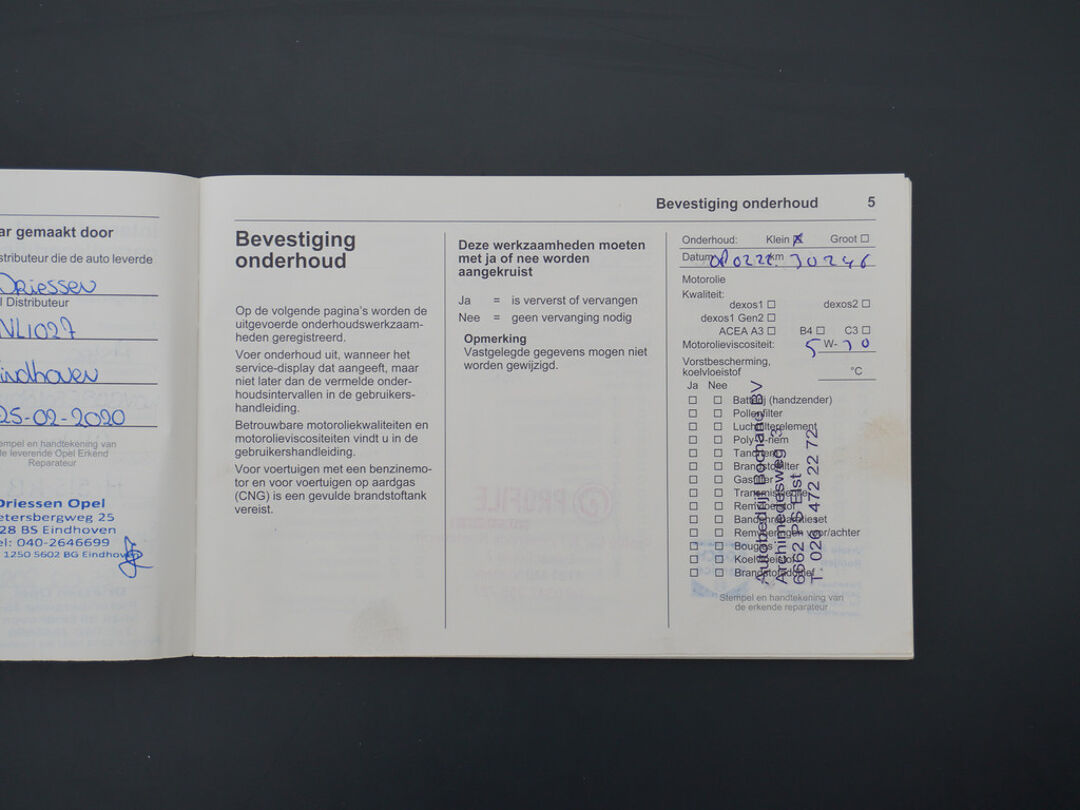 ar gemaakt door
stributeur die de auto leverde
Driessen
l Distributeur
NL1027
indhoven
25-02-2020
empel en handtekening van
de leverende Opel Erkend
Reparateur
Driessen Opel
etersbergweg 25
28 BS Eindhoven
el: 040-2646699
1250 5602 BG Eindhoven
Bevestiging onderhoud 5
Bevestiging
onderhoud
Op de volgende pagina's worden de
uitgevoerde onderhoudswerkzaam-
heden geregistreerd.
Voer onderhoud uit, wanneer het
service-display dat aangeeft, maar
niet later dan de vermelde onder-
houdsintervallen in de gebruikers-
handleiding.
Betrouwbare motoroliekwaliteiten en
motorolieviscositeiten vindt u in de
gebruikershandleiding.
Voor voertuigen met een benzinemo-
tor en voor voertuigen op aardgas
(CNG) is een gevulde brandstoftank
vereist.
Deze werkzaamheden moeten
met ja of nee worden
aangekruist
Ja = is ververst of vervangen
Nee = geen vervanging nodig
Opmerking
Vastgelegde gegevens mogen niet
worden gewijzigd.
Onderhoud: Klein ☒ Groot ☐
Datum km 30246
Motorolie
Kwaliteit:
dexos1 ☐ dexos2 ☐
dexos1 Gen2 ☐
ACEA A3 ☐ B4 ☐ C3 ☐
Motorolieviscositeit: 5 W- 30
Vorstbescherming,
koelvloeistof °C
Ja Nee
☐ ☐ Batterij (handzender)
☐ ☐ Pollenfilter
☐ ☐ Luchtfilterelement
☐ ☐ Poly-V-riem
☐ ☐ Tandriem
☐ ☐ Brandstoffilter
☐ ☐ Gasfilter
☐ ☐ Transmissieolie
☐ ☐ Remvloeistof
☐ ☐ Bandenreparatieset
☐ ☐ Remvoeringen voor/achter
☐ ☐ Bougies
☐ ☐ Koelvloeistof
☐ ☐ Brandstofadditief
Stempel en handtekening van
de erkende reparateur
Autobedrijf Bochane BV
Archimedesweg 3
6662 PS Elst
T. 026 - 472 22 72